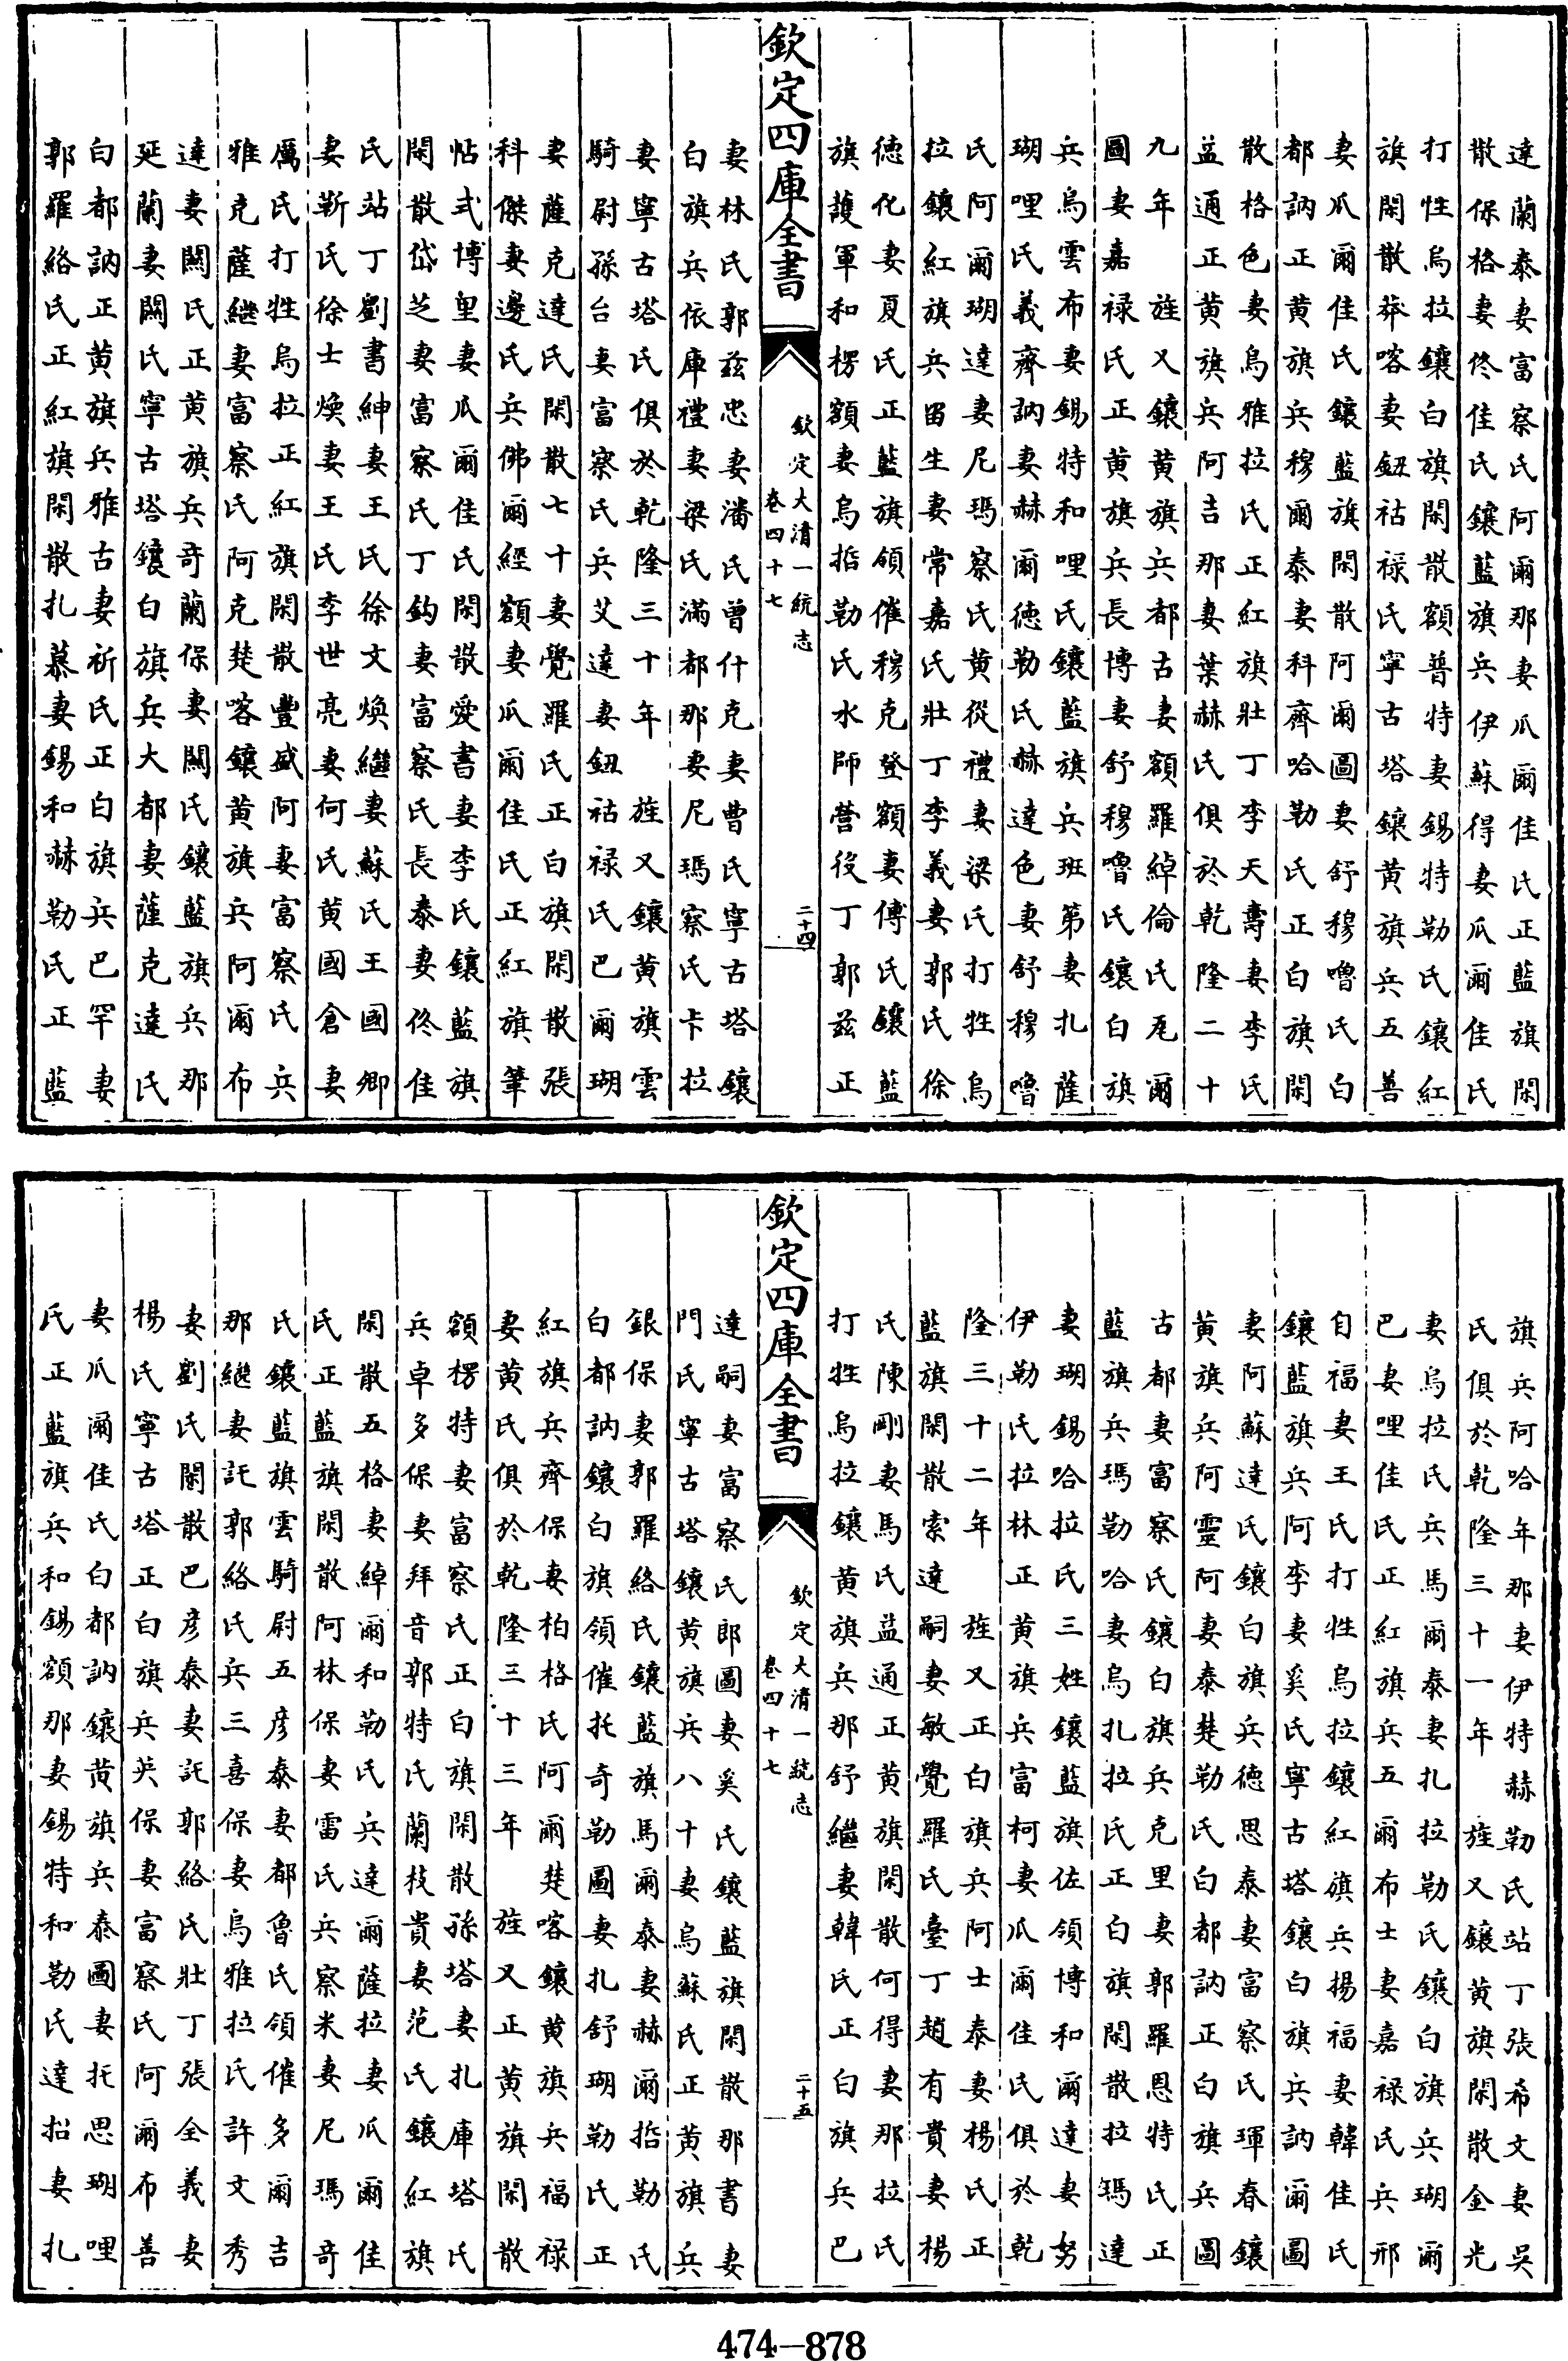 達蘭泰妻富察氏阿爾那妻瓜爾佳氏正藍旗閑
散保格妻佟佳氏鑲藍旗兵伊蘇得妻瓜爾佳氏
打牲烏拉鑲白旗閑散額普特妻錫特勒氏鑲紅
旗閑散莽喀妻鈕祜禄氏寧古塔鑲黄旗兵五善
妻瓜爾佳氏鑲藍旗閑散阿爾圖妻舒穆嚕氏白
都訥正黄旗兵穆爾泰妻科齊哈勒氏正白旗閑
散格色妻烏雅拉氏正紅旗壯丁李天壽妻李氏
益通正黄旗兵阿吉那妻葉赫氏俱於乾隆二十
九年旌又鑲黄旗兵都古妻額羅綽倫氏尼爾
圖妻嘉禄氏正黄旗兵長博妻舒穆嚕氏鑲白旗
兵烏雲布妻錫特和哩氏鑲藍旗兵班第妻扎薩
瑚哩氏義齊訥妻赫爾德勒氏赫達色妻舒穆嚕
氏阿爾瑚達妻尼瑪察氏黄從禮妻梁氏打牲烏
拉鑲紅旗兵留生妻常嘉氏壯丁李義妻郭氏徐
德化妻夏氏正藍旗領催穆克登額妻傅氏鑲藍
旗護軍和楞額妻烏拮勒氏水師營役丁郭兹正
欽定四庫全書
欽定大清一統志
卷四十七
二十四
妻林氏郭兹忠妻潘氏曾什克妻曹氏寧古塔鑲
白旗兵依庫禮妻梁氏滿都那妻尼瑪察氏卡拉
妻寧古塔氏俱於乾隆三十年旌又鑲黄旗雲
騎尉孫台妻富察氏兵艾達妻鈕祜禄氏巴爾瑚
妻薩克達氏閑散七十妻覺羅氏正白旗閑散張
科傑妻邊氏兵佛爾經額妻瓜爾佳氏正紅旗筆
帖式博里妻瓜爾佳氏閑散愛書妻李氏鑲藍旗
閑散岱芝妻富察氏丁鈞妻富察氏長泰妻佟佳
氏站丁劉書紳妻王氏徐文煥繼妻蘇氏王國卿
妻靳氏徐士煥妻王氏李世亮妻何氏黄國倉妻
厲氏打牲烏拉正紅旗閑散豐盛阿妻富察氏兵
雅克薩繼妻富察氏阿克楚喀鑲黄旗兵阿爾布
達妻闗氏正黄旗兵奇蘭保妻闗氏鑲藍旗兵那
延蘭妻闗氏寧古塔鑲白旗兵大都妻薩克達氏
白都訥正黄旗兵雅古妻祈氏正白旗兵巴罕妻
郭羅絡氏正紅旗閑散扎慕妻錫和赫勒氏正藍
旗兵阿哈年那妻伊特赫勒氏站丁張希文妻吳
氏俱於乾隆三十一年旌又鑲黄旗閑散金光
妻烏拉氏兵馬爾泰妻扎拉勒氏鑲白旗兵瑚爾
巴妻哩佳氏正紅旗兵五爾布士妻嘉禄氏兵邢
自福妻王氏打牲烏拉鑲紅旗兵揚福妻韓佳氏
鑲藍旗兵阿李妻奚氏寧古塔鑲白旗兵訥爾圖
妻阿蘇達氏鑲白旗兵德思泰妻富察氏琿春鑲
黄旗兵阿靈阿妻泰楚勒氏白都訥正白旗兵圖
古都妻富察氏鑲白旗兵克里妻郭羅恩特氏正
藍旗兵瑪勒哈妻烏扎拉氏正白旗閑散拉瑪達
妻瑚錫哈拉氏三姓鑲藍旗佐領博和爾達妻努
伊勒氏拉林正黄旗兵富柯妻瓜爾佳氏俱於乾
隆三十二年旌又正白旗兵阿士泰妻楊氏正
藍旗閑散索達嗣妻敏覺羅氏臺丁趙有貴妻楊
氏陳剛妻馬氏益通正黄旗閑散何得妻那拉氏
打牲烏拉鑲黄旗兵那舒繼妻韓氏正白旗兵巴
欽定四庫全書
欽定大清一統志
卷四十七
二十五
達嗣妻富察氏郎圖妻奚氏鑲藍旗閑散那書妻
門氏寧古塔鑲黄旗兵八十妻烏蘇氏正黄旗兵
銀保妻郭羅絡氏鑲藍旗馬爾泰妻赫爾拮勒氏
白都訥鑲白旗領催托奇勒圖妻扎舒瑚勒氏正
紅旗兵齊保妻柏格氏阿爾楚喀鑲黄旗兵福禄
妻黄氏俱於乾隆三十三年旌又正黄旗閑散
額楞特妻富察氏正白旗閑散孫塔妻扎庫塔氏
兵卓多保妻拜音郭特氏蘭枝貴妻范氏鑲紅旗
閑散五格妻綽爾和勒氏兵達爾薩拉妻瓜爾佳
氏正藍旗閑散阿林保妻雷氏兵察米妻尼瑪奇
氏鑲藍旗雲騎尉五彦泰妻都魯氏領催多爾吉
那繼妻託郭絡氏兵三喜保妻烏雅拉氏許文秀
妻劉氏閑散巴彦泰妻託郭絡氏壯丁張全義妻
楊氏寧古塔正白旗兵英保妻富察氏阿爾布善
妻瓜爾佳氏白都訥鑲黄旗兵泰圖妻托思瑚哩
氏正藍旗兵和錫額那妻錫特和勒氏達拈妻扎
474—878